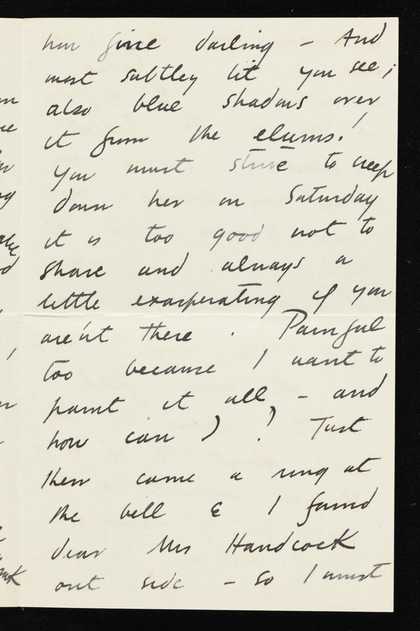 her fine darling – And
most subtley lit you see;
also blue shadows over
it from the elums!
You must strive to creep
down her on Saturday
it is too good not to
share and always a
little exasperating if you
are'nt there. Painful
too because I want to
paint it all – and
how can I? Just
then came a ring at
the bell & I found
dear Mrs Handcock
out side – so I must